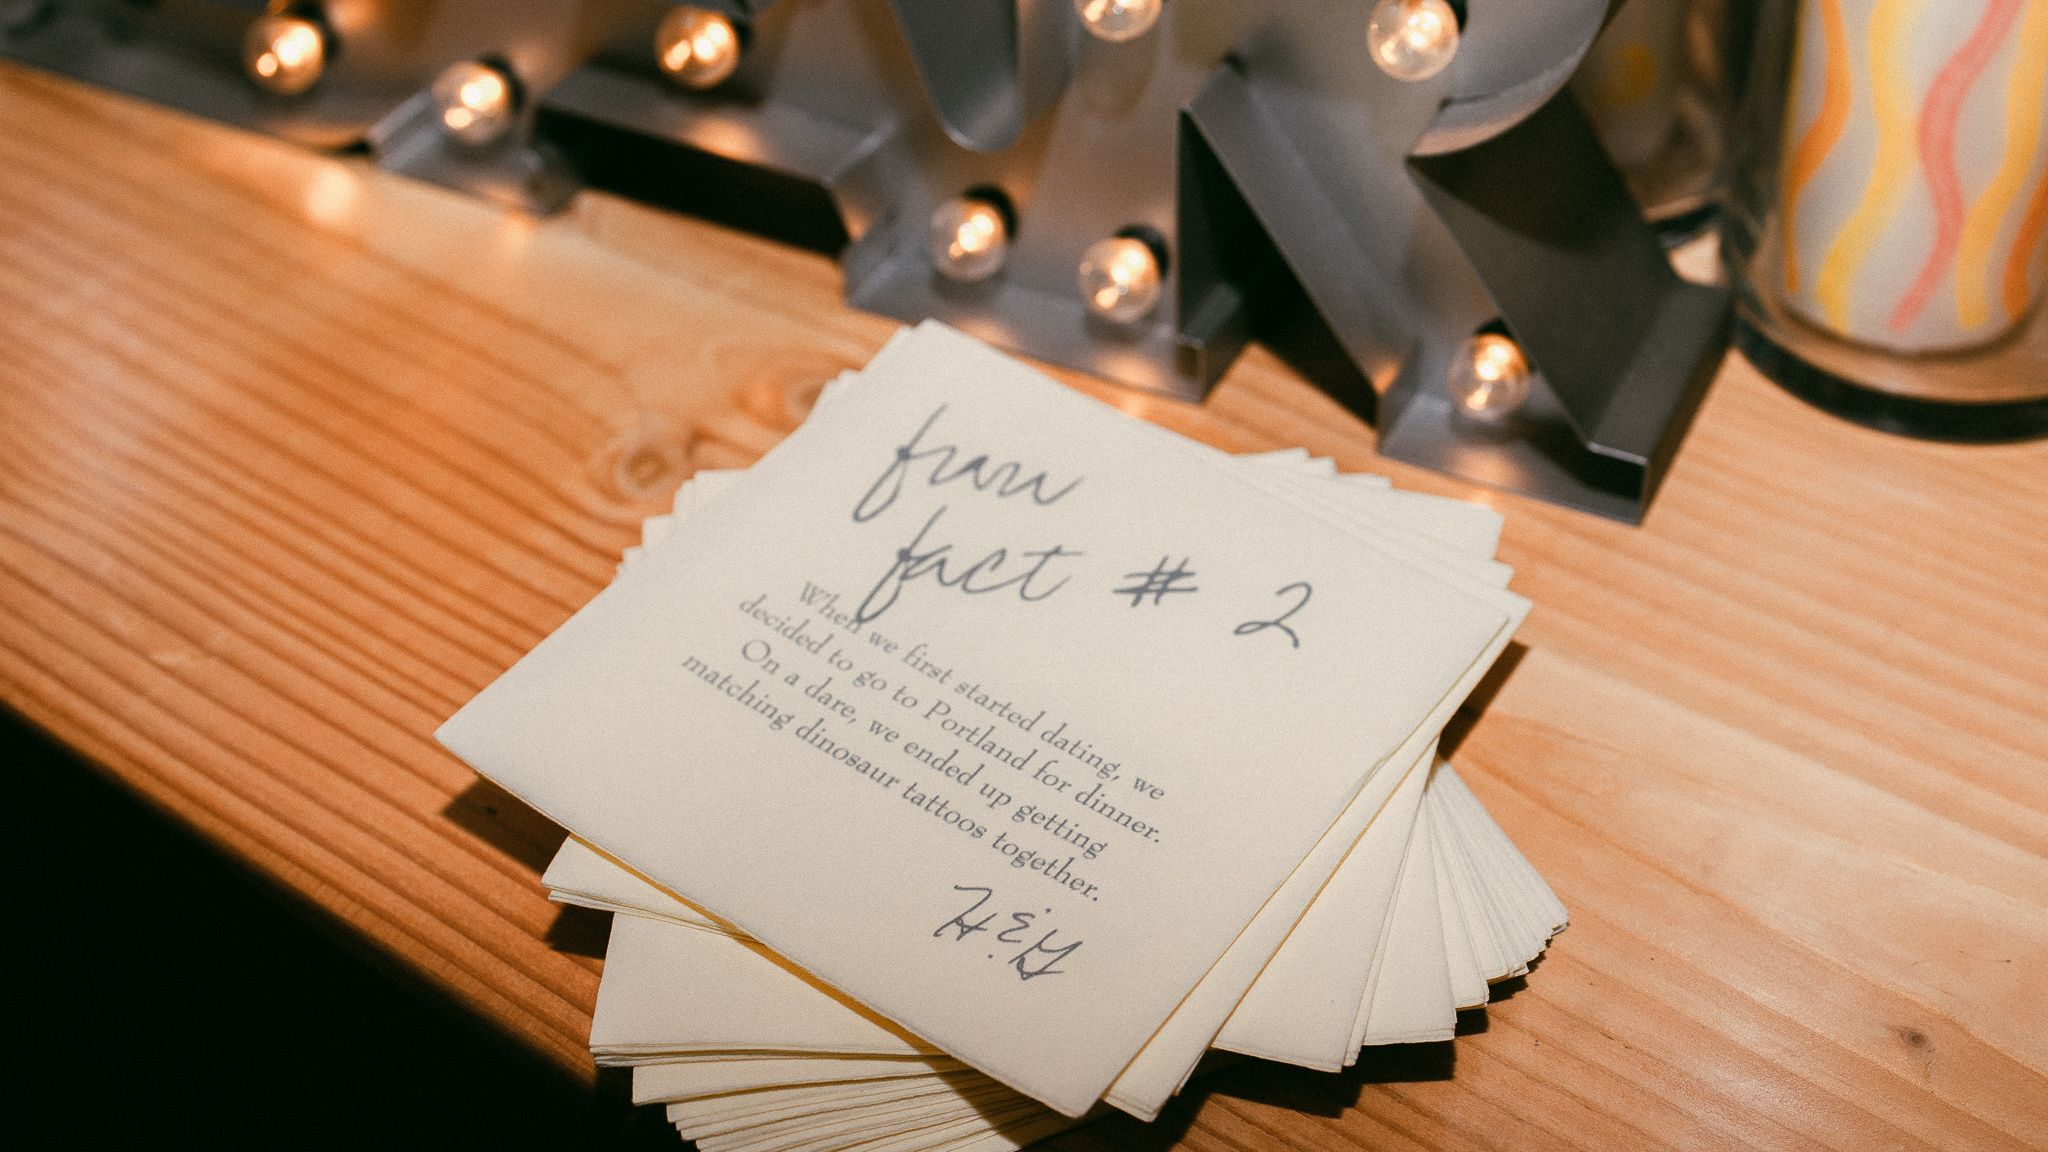 fun
fact # 2
When we first started dating, we
decided to go to Portland for dinner.
On a dare, we ended up getting
matching dinosaur tattoos together.